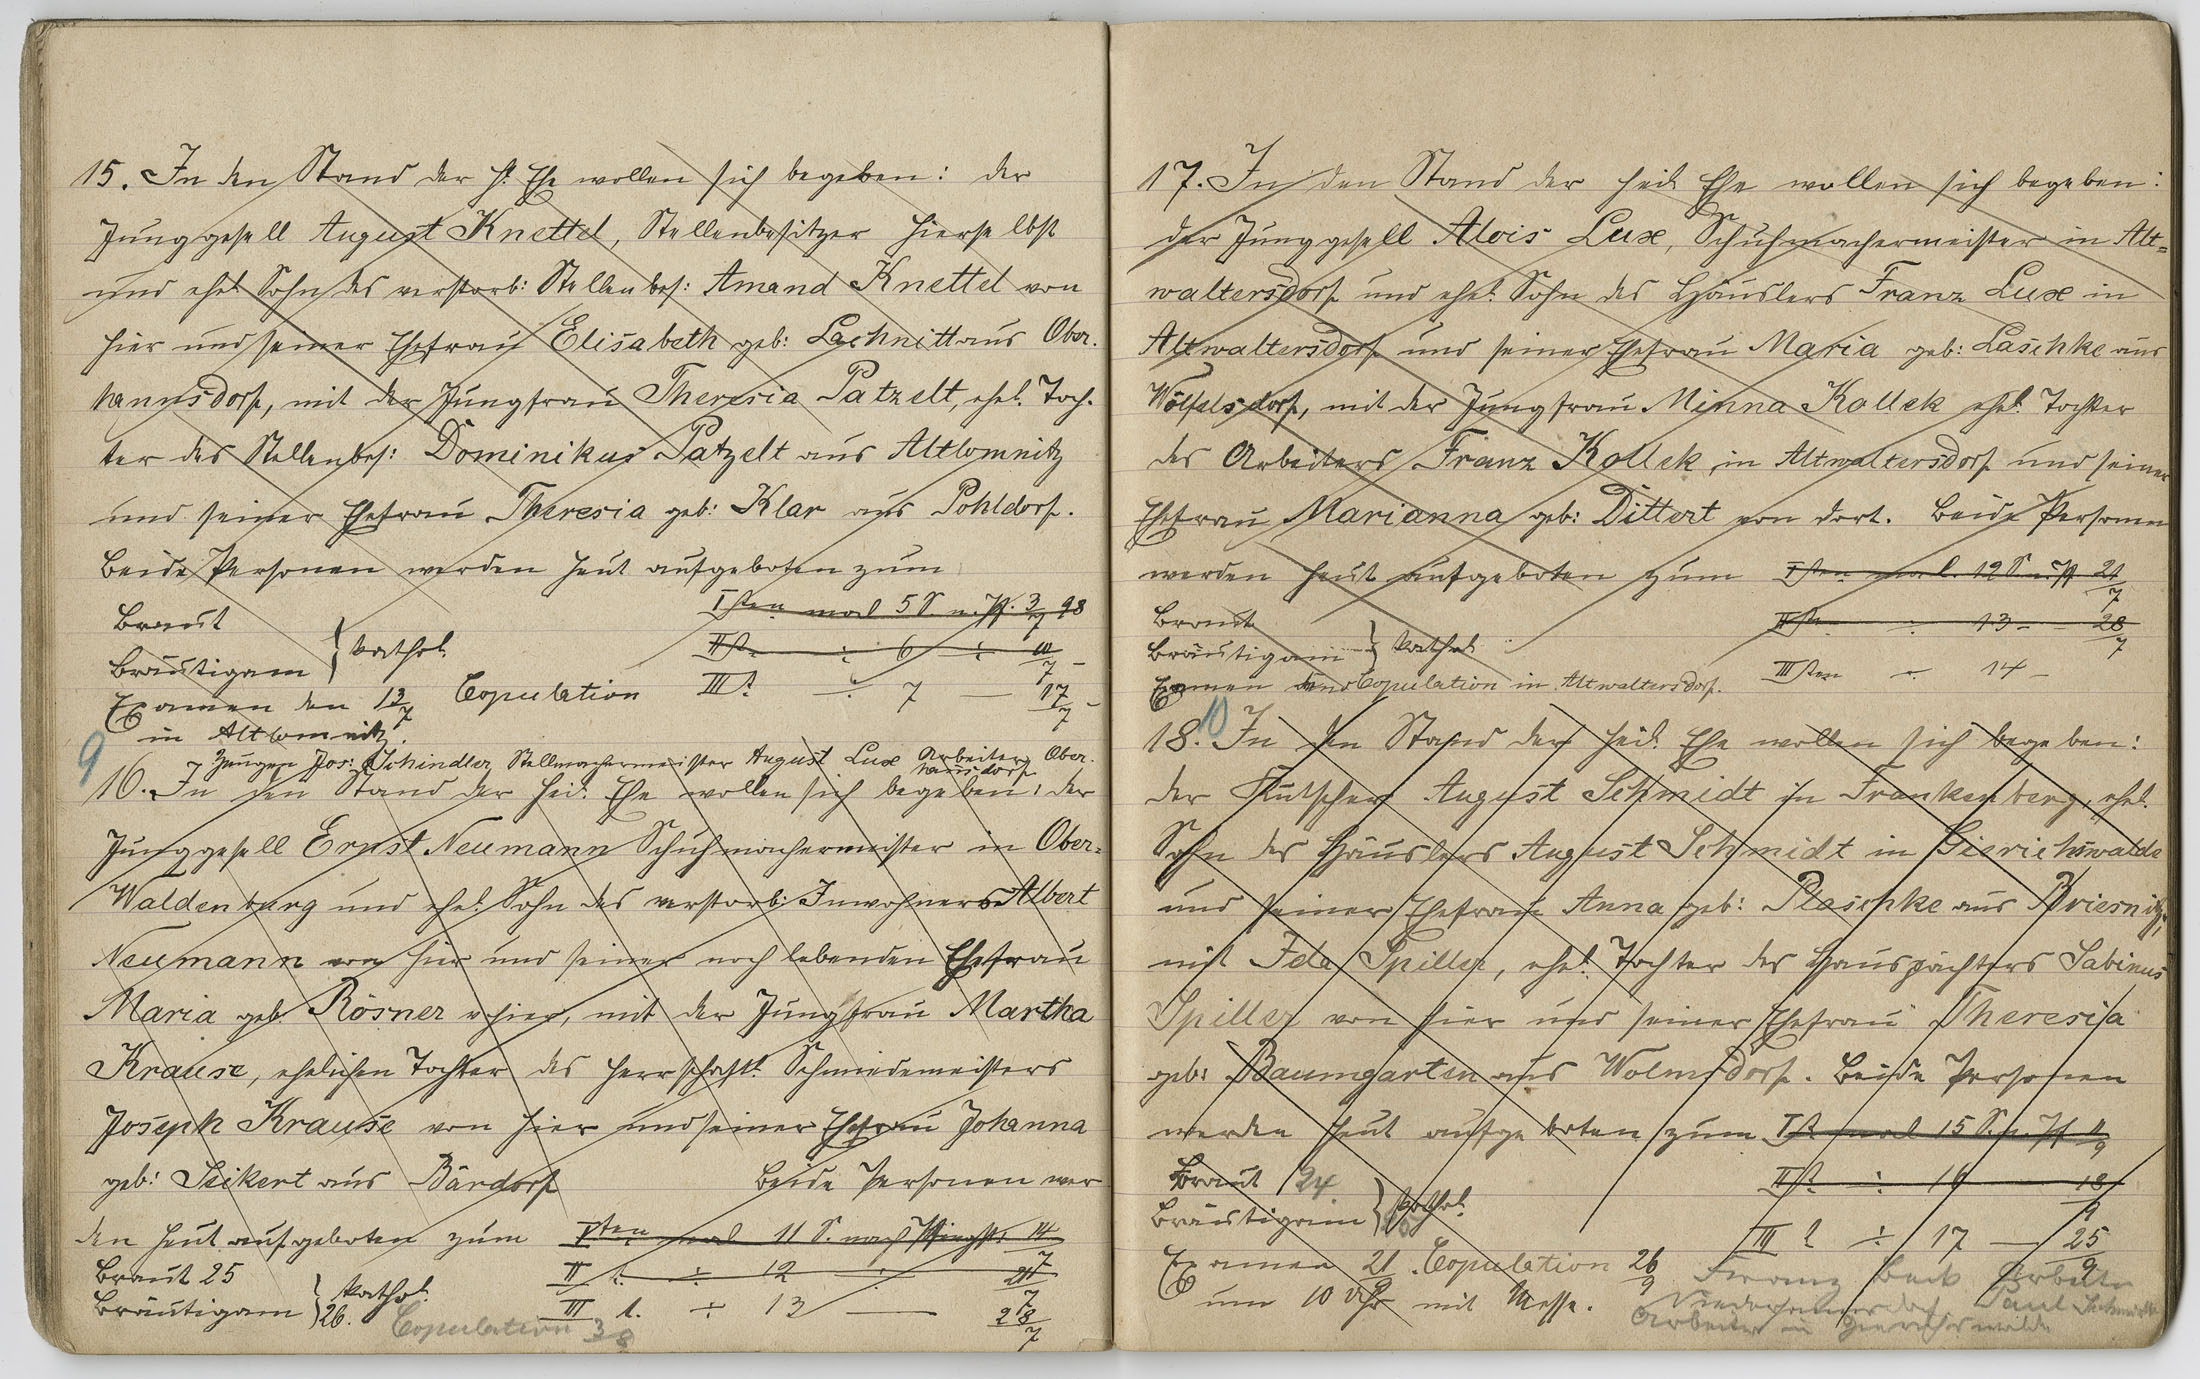 15. In den Stand der h. Ehe wollen sich begeben: der
Junggesell August Knettel, Stellenbesitzer hierselbst
und ehel. Sohn des verstorb: Stellenbes: Amand Knettel von
hier und seiner Ehefrau Elisabeth geb: Lachnitt aus Ober-
hannsdorf, mit der Jungfrau Theresia Patzelt, ehel. Toch-
ter des Stellenbes: Dominikus Patzelt aus Altlomnitz
und seiner Ehefrau Theresia geb: Klar aus Pohldorf.
Beide Personen werden heut aufgeboten zum
Isten mal 5 S. n. Pf. 3/7 98
Braut
IIt. ÷ 6 ÷ 10/7 –
Bräutigam } kathol.
Examen den 13/7 Copulation IIIt. ÷ 7 — 17/7 –
in Altlomnitz.
Zeugen Jos: Schindler, Stellmachermeister August Lux Arbeiter, Ober-
hannsdorf
9
16. In den Stand der heil. Ehe wollen sich begeben: der
Junggesell Ernst Neumann Schuhmachermeister in Ober-
Waldenburg und ehel. Sohn des verstorb: Inwohners Albert
Neumann von hier und seiner noch lebenden Ehefrau
Maria geb. Rösner v hier, mit der Jungfrau Martha
Krause, ehelichen Tochter des herrschaftl. Schmiedemeisters
Joseph Krause von hier und seiner Ehefrau Johanna
geb: Seikert aus Bärdorf Beide Personen wer
den heut aufgeboten zum Isten mal 11 S. nach Pfingst: 14/7
Braut 25 II t. ÷ 12 ÷ 21/7
Bräutigam 26. } kathol. III t. ÷ 13 — 28/7
Copulation 3/8
17. In den Stand der heil. Ehe wollen sich begeben:
der Junggesell Alois Lux, Schuhmachermeister in Alt-
waltersdorf und ehel. Sohn des Häuslers Franz Lux in
Altwaltersdorf und seiner Ehefrau Maria geb: Laschke aus
Wölfelsdorf, mit der Jungfrau Minna Kollek ehel. Tochter
des Arbeiters Franz Kollek in Altwaltersdorf und seiner
Ehefrau Marianna geb: Dittert von dort. Beide Personen
werden heut aufgeboten zum Isten mal. 12 S n. Pf 21/7
Braut IIt. ÷ 13 – 28/7
Bräutigam } kathol.
Examen und Copulation in Altwaltersdorf. IIIten – 14 –
10
18. In den Stand der heil. Ehe wollen sich begeben:
der Kutscher August Schmidt in Frankenberg, ehel.
Sohn des Häuslers August Schmidt in Gierichswalde
und seiner Ehefrau Anna geb: Plaschke aus Briesnitz,
mit Ida Spiller, ehel. Tochter des Hauspächters Sabinus
Spiller von hier und seiner Ehefrau Theresia
geb: Baumgarten aus Wolmsdorf. Beide Personen
werden heut aufgeboten zum It. mal 15 S. n. Pf 11/9
Braut 24. IIt. ÷ 16 – 18/9
Bräutigam } kathol.
III t ÷ 17 — 25/9
Examen 21/9. Copulation 26/9
um 10 Uhr mit Messe.
Franz Beck Arbeiter
Niederhannsdorf Paul Schmidt
Arbeiter in Gierichswalde